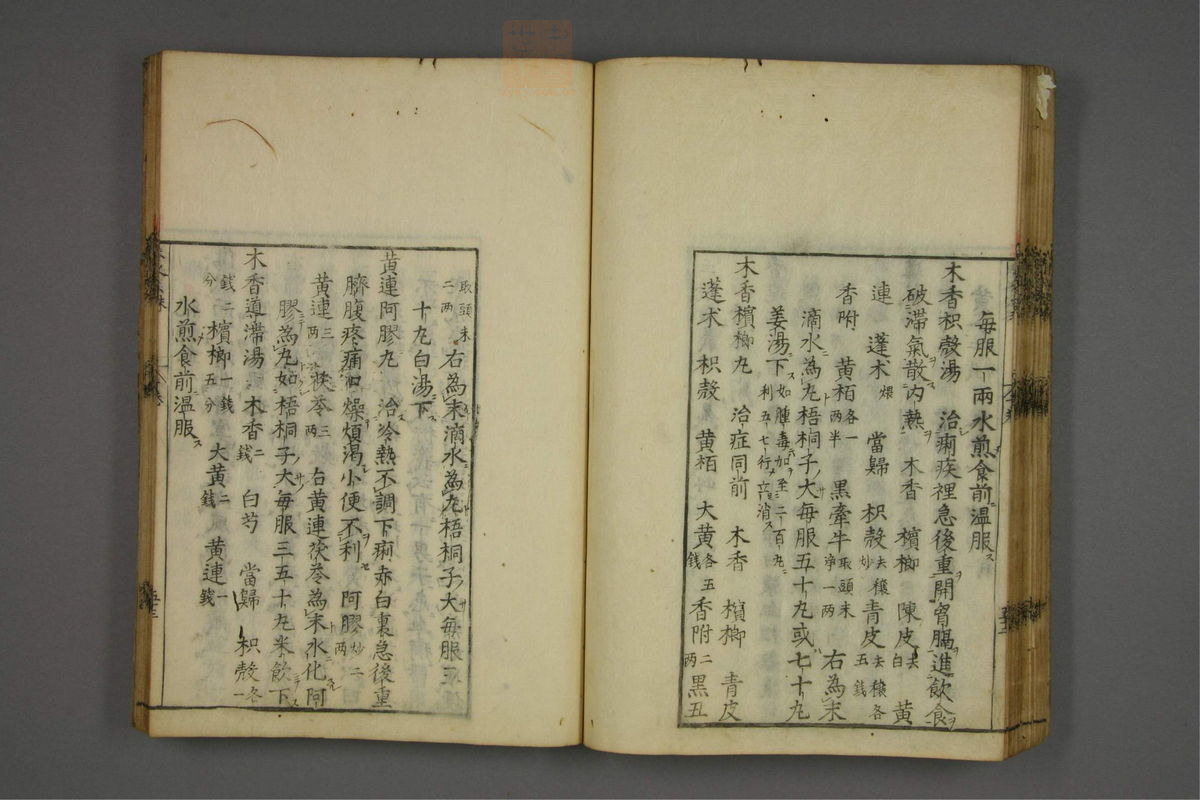 毎服一兩水煎食前温服ス
木香枳殻湯 治痢疾裡急後重開胃膈進飲食
破滞氣散内熱 木香 檳榔 陳皮去白 黄
連 蓬朮煨 當歸 枳殻去穰炒 青皮去穰各五錢
香附 黄栢各一兩半 黒牽牛取頭末净一两 右為末
滴水為丸梧桐子大毎服五十丸或七十丸
姜湯下如腫毒加至二百丸利五七行立消ス
木香檳榔丸 治症同前 木香 檳榔 青皮
蓬朮 枳殻 黄栢 大黄各五錢 香附二两 黒丑
取頭末二两 右為末滴水為丸梧桐子大毎服
十丸白湯下
黄連阿膠丸 治冷熱不調下痢赤白裏急後重
臍腹疼痛口燥煩渇小便不利 阿膠炒二两
黄連三两 茯苓三两 右黄連茯苓為末水化阿
膠為丸如梧桐子大毎服三五十丸米飲下
木香導滞湯 木香二錢 白芍 當歸 枳殻各一
錢二分 檳榔一錢五分 大黄二錢 黄連一錢
水煎食前温服ス